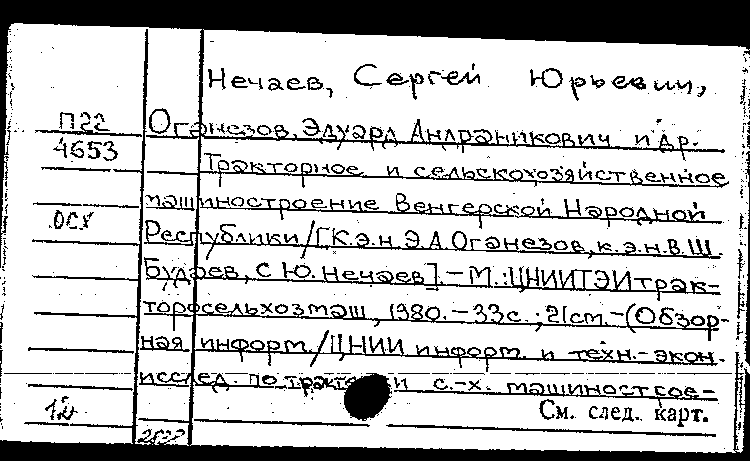 Нечаев, Сергей Юрьевич,
П22 Оганезов, Эдуард Андраникович и др.
4653 Тракторное и сельскохозяйственное
машиностроение Венгерской Народной
ОСХ Республики/[К.э.н. Э.А. Оганезов, к.э.н. В.Ш.
Будаев, С.Ю. Нечаев].-М.:ЦНИИТЭИтрак-
торосельхозмаш, 1980.-33с.; 21см.-(Обзор-
ная информ./ЦНИИ информ. и техн.-экон.
исслед. по тракт. и с.-х. машиностров-
См. след. карт.